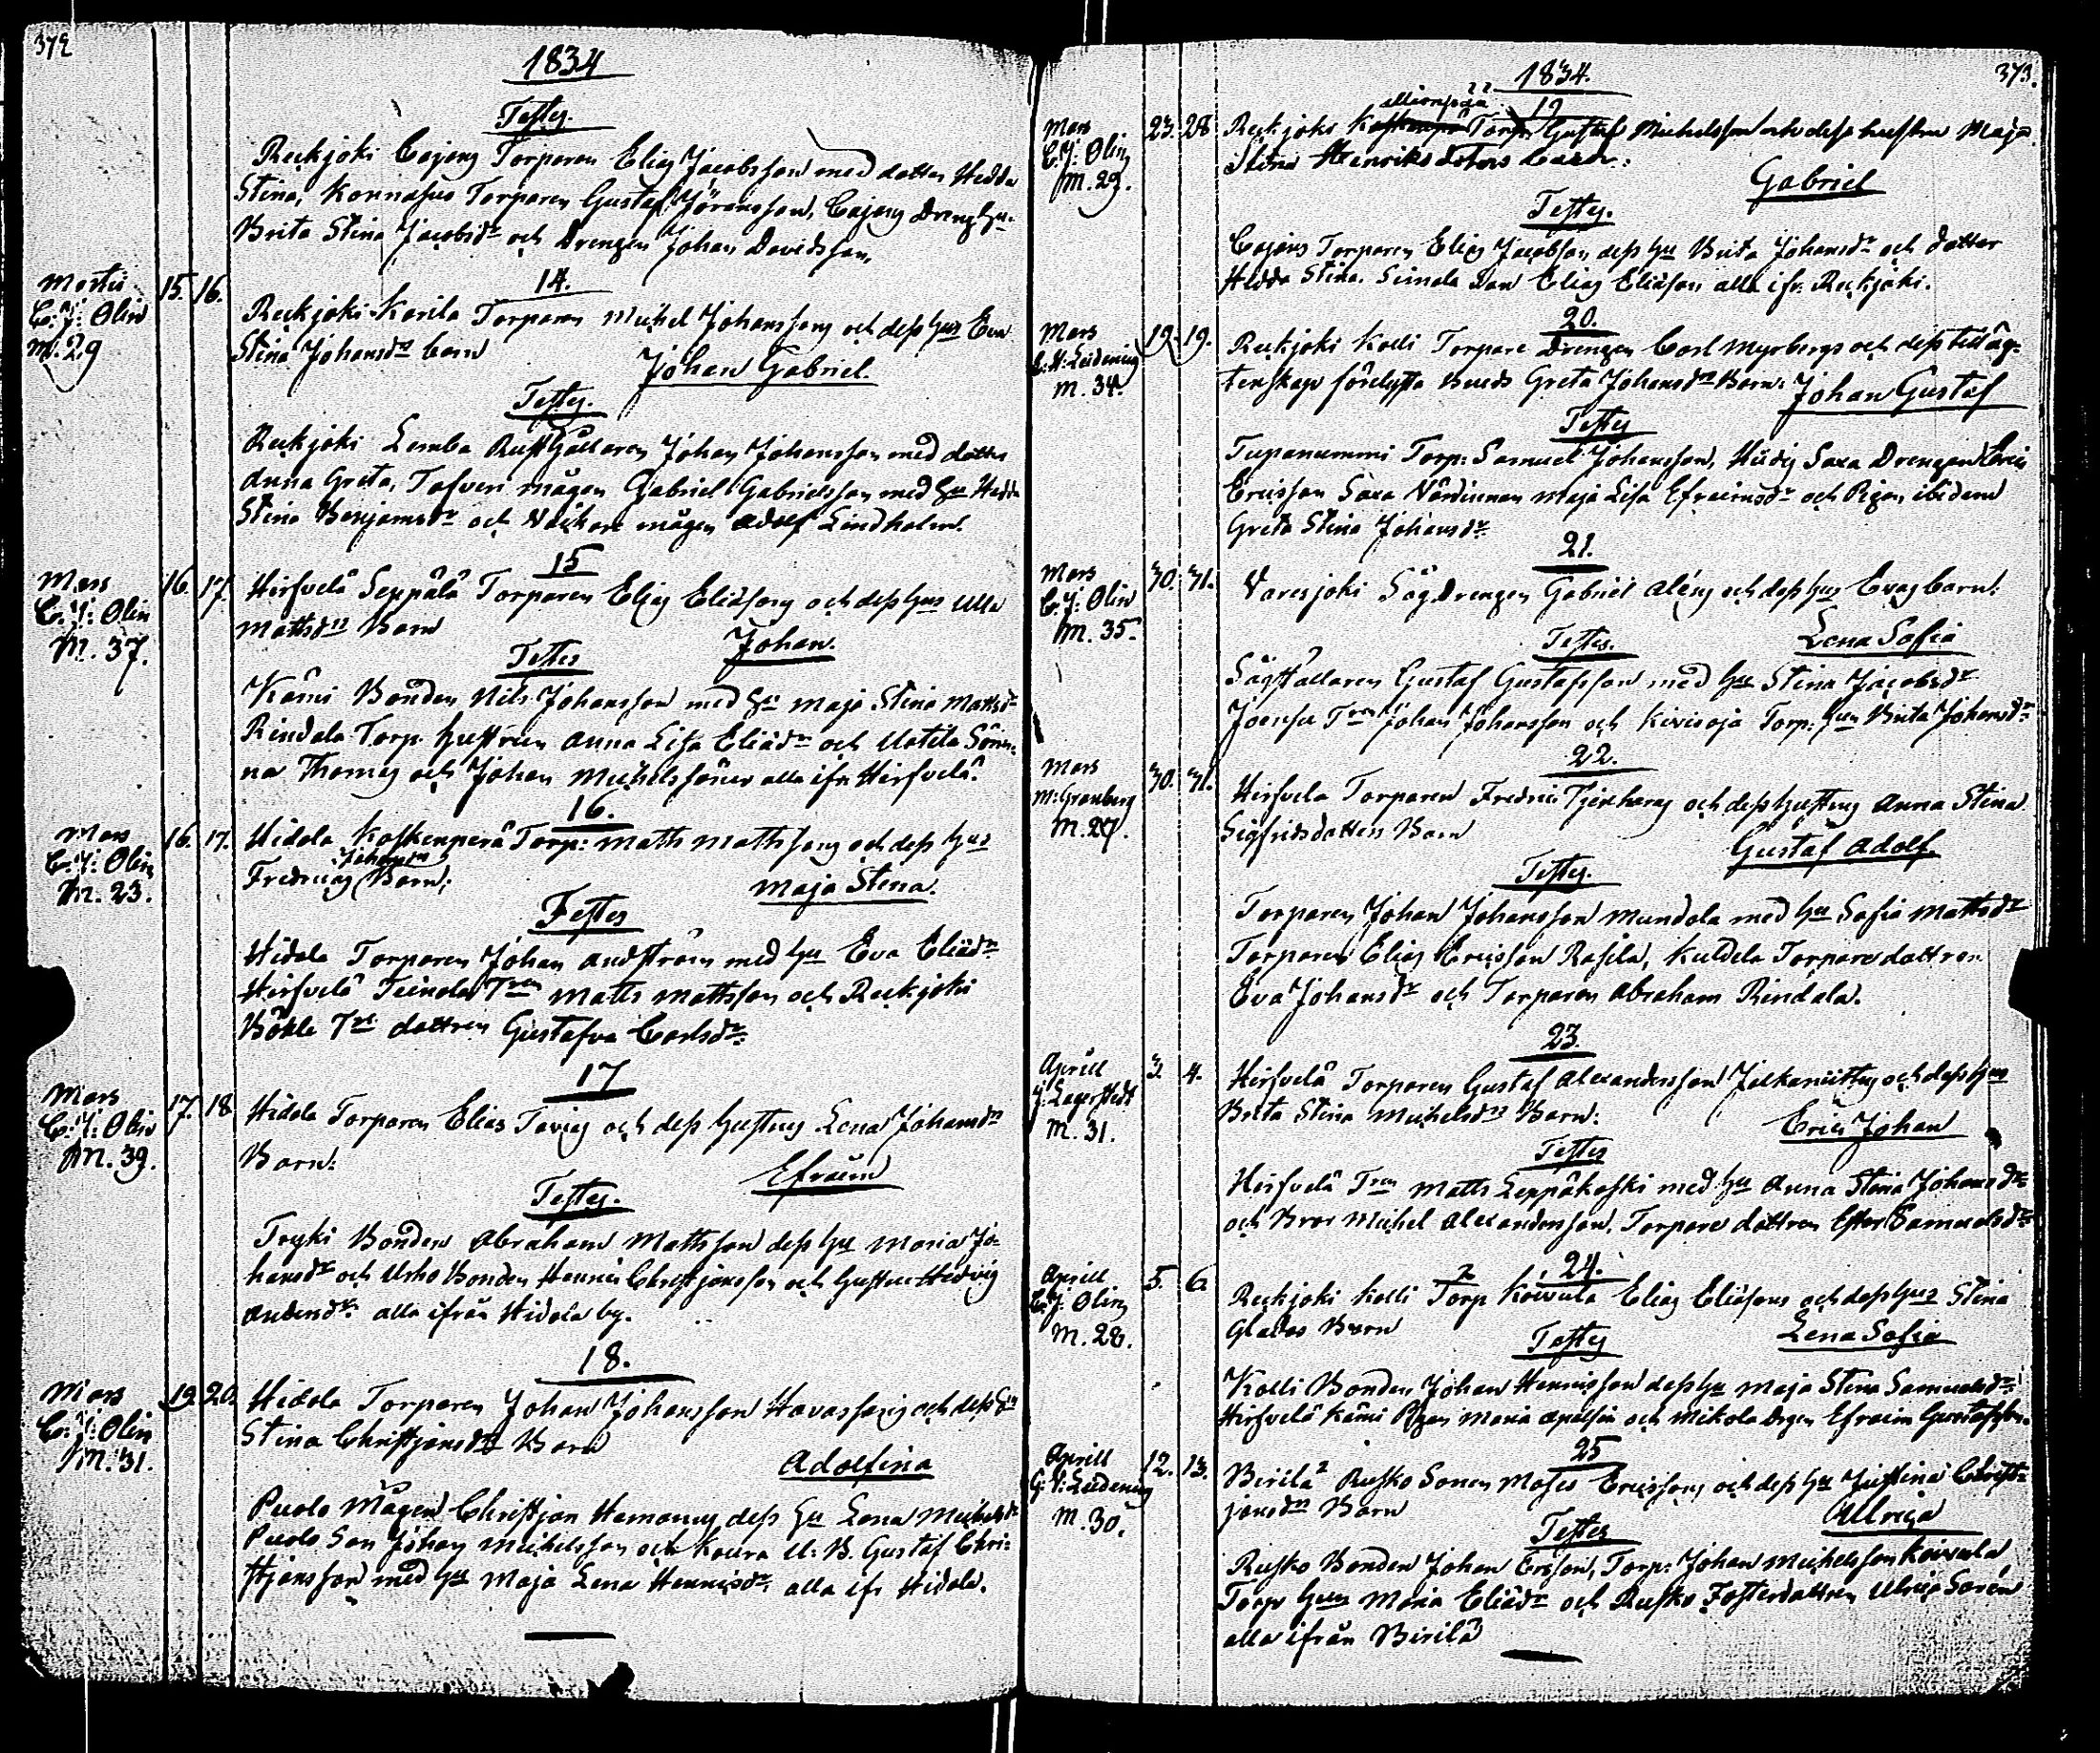 372
1834
Testes.
Reckjoki Cajens Torparen Elias Jacobsson med dotter Hedda
Stina, Kornasuo Torparen Gustaf Jöransson, Cajens Dreng Hu.
Brita Stina Jacobsdr och Drengen Johan Davidsson.
14.
Martii
C: J: Olin
M. 29
15. 16.
Reckjoki Karila Torparen Michel Johanssons och dess Hus Eva
Stina Johansdrs barn
Johan Gabriel.
Testes.
Reckjoki Lemba Rusthållaren Johan Johansson med dotter
Anna Greta, Tofveri mågen Gabriel Gabrielsson med Hu Hedda
Stina Benjamsdr och mågen Adolf Lindholm.
15
Mars
C: J: Olin
M. 37.
16. 17.
Hirsvelä Seppälä Torparen Elias Eliäsons och dess Hus Ulla
Mattsdrs Barn
Johan.
Testes
Kämi Bonden Nils Johansson med Hu Maja Stina Mattsdr
Rindala Torp. Hustrun Anna Lisa Eliädr och Uotila Söner-
na Thomas och Johan Michelssöner alla ifr. Hirsvelä.
16.
Mars
C: J: Olin
M. 23.
16. 17.
Hidola Koskenperä Torp: Matts Mattssons och dess Hus
Fredricas Johansdr Barn:
Maja Stina.
Testes
Hidola Torparen Johan Andström med Hu Eva Eliädr
Hirsvelä Teinola Tren Matts Mattsson och Reckjoki
Böhle Tre dottren Gustafva Carlsdr.
17
Mars
C: J: Olin
M. 39.
17. 18
Hidola Torparen Elias Tavies och dess Hustrus Lena Johansdrs
Barn:
Efraim
Testes.
Tryki Bonden Abraham Mattsson dess Hu Maria Jo-
hansdr och Urho Bonden Hennric Christjansson och Hustru Hedvig
Andersdr. alla ifrån Hidola by.
18.
Mars
C: J: Olin
M. 31.
19. 20.
Hidola Torparen Johan Johansson och dess Hus
Stina Christjansdrs Barn
Adolfina
Puolo Mågen Christjan dess Hu Lena Michelsdr
Puolo Son Johan Michelsson och Koura U: B. Gustaf Chri-
stjansson med Hu Maja Lena Hennricsdr. alla ifr Hidola.
1834.
373.
19
Mars
C: J: Olin
M. 29.
23. 28
Reckjoki Torpr Gustaf Michelsson och dess hustru Maja
Stina Henriksdotters barn:
Gabriel
Testes.
Cajens Torparen Elias Jacobsson dess Hu Brita Johansdr och dotter
Hedda Stina. Simola Son Elias Eliäson alla ifr. Reckjoki.
20.
Mars
M. 34.
19. 19.
Reckjoki Kolli Torpare Drengen Carl Myrbergs och dess till äg-
tenskap förelysta Buds Greta Johansdrs Barn: Johan Gustaf
Testes
Tupanummi Torp: Samuel Johansson, Hidois Saxa Drengen Eric
Ericsson Saxa Värdinnan Maja Lisa Efraimsdr och Pigan ibidem
Greta Stina Johansdr.
21.
Mars
C: J: Olin
M. 35.
30. 31.
Varesjoki Såg Drengen Gabriel Aléns och dess Hus Evas barn:
Lena Sofia
Testes.
Sågställaren Gustaf Gustafsson med Hu Stina Jacobsdr
Joensu Tren Johan Johansson och Kivioja Torp: Hun Brita Johansdr
22.
Mars
M: Granberg
M. 27.
30. 31.
Hirsvelä Torparen Fredric och dess Hustrus Anna Stina
Sigfridsdotters Barn
Gustaf Adolf
Testes.
Torparen Johan Johansson Mundola med Hu Sofia Mattsdr
Torparen Elias Ericsson Rasila, Kuldela Torpare dottren
Eva Johansdr och Torparen Abraham Rindala.
23.
Aprill
J: Lagerstedt
M. 31.
3. 4.
Hirsvelä Torparen Gustaf Alexandersson och dess Hus
Brita Stina Michelsdrs Barn:
Eric Johan
Testes
Hirsvelä Tren Matts Leppäkoski med Hu Anna Stina Johansdr
och Bror Michel Alexandersson. Torpare dottren Ester Samuelsdr.
24.
Aprill
C: J: Olin
M. 28.
5. 6.
Reckjoki Kolli Torp Koivula Elias Eliäsons och dess Hus Stina
Glados Barn
Lena Sofia
Testes
Kolli Bonden Johan Hennricsson dess Hu Maja Stina Samuelsdr.
Hirsvelä Kämi Pigan Maria och Mikola drgen Efraim Gustafsson.
25
Aprill
M. 30.
12. 13.
Birilä Rusko Sonen Moses Ericssons och dess Hu Justina Christ-
jansdrs Barn
Ulrica
Testes
Rusko Bonden Johan Ersson, Torp: Johan Michelsson Koivula
Torp Hun Maria Eliädr och Rusko Fosterdottren Ulrica Sorén
alla ifrån Birilä